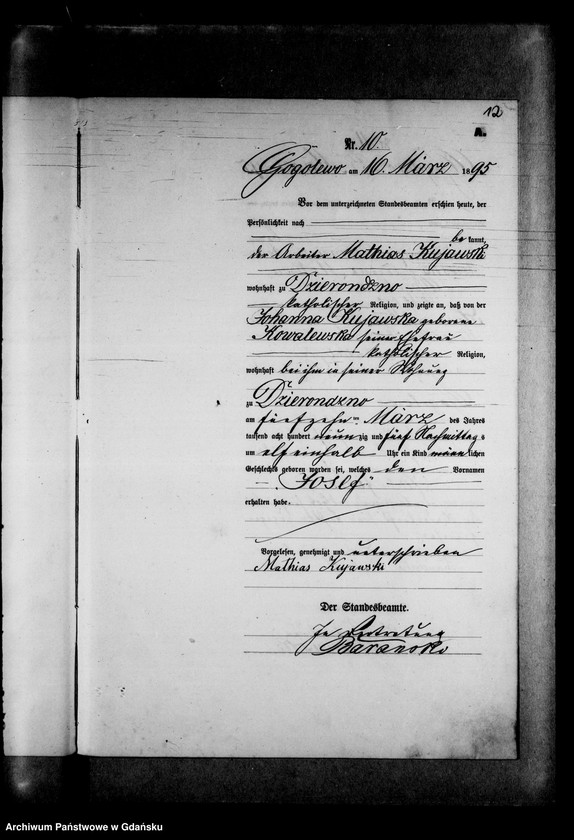 12
A.
Nr. 10.
Gogolewo am 16. März 1895
Vor dem unterzeichneten Standesbeamten erschien heute, der
Persönlichkeit nach
be kannt,
der Arbeiter Mathias Kujawski
wohnhaft zu Dzierondzno
katholischer Religion, und zeigte an, daß von der
Johanna Kujawska geborene
Kowalewska seiner Ehefrau
katholischer Religion,
wohnhaft bei ihm in seiner Wohnung
zu Dzierondzno
am fünfzehnten März des Jahres
tausend acht hundert neunzig und fünf Nachmittags
um elf einhalb Uhr ein Kind männlichen
Geschlechts geboren worden sei, welches den Vornamen
"Josef"
erhalten habe.
Vorgelesen, genehmigt und unterschrieben
Mathias Kujawski
Der Standesbeamte.
In Vertretung
Baranski
Archiwum Państwowe w Gdańsku